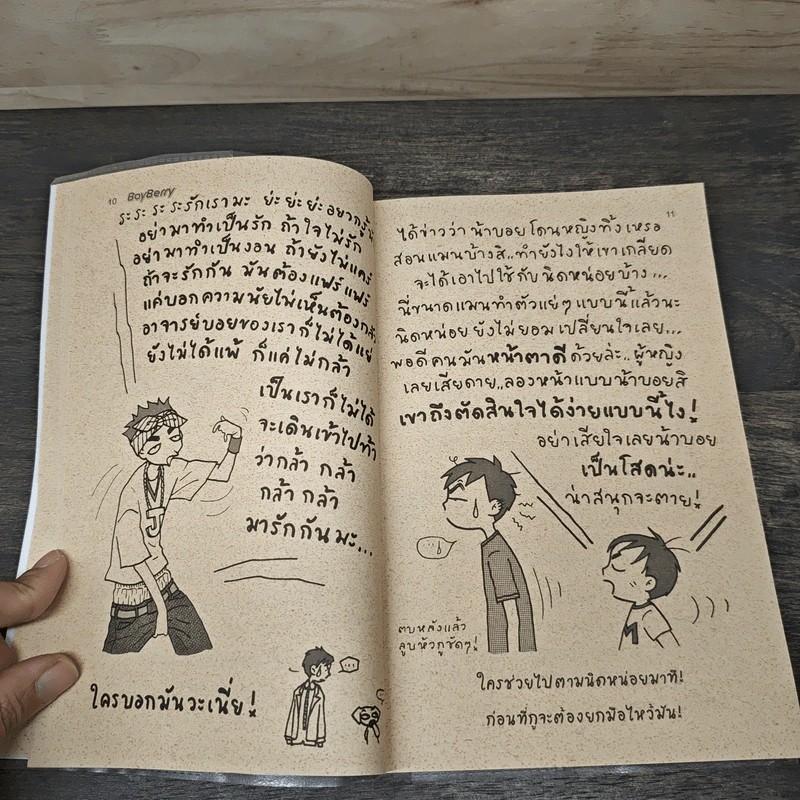 10 BoyBerry
ระ ระ ระ ระรักเรามะ ย่ะ ย่ะ ย่ะ อยากรู้
อย่ามาทำเป็นรัก ถ้าใจไม่รัก
อย่ามาทำเป็นงอน ถ้ายังไม่แคร์
ถ้าจะรักกัน มันต้องแฟร์ แฟร์
แค่บอกความนัยไพ่เห็นต้อง
อาจารย์บอยของเราก็ไม่ได้แย่
ยังไม่ได้แพ้ ก็แค่ไม่กล้า
เป็นเราก็ไม่ได้
จะเดินเข้าไปท้า
ว่ากล้า กล้า
กล้า กล้า
มารักกันมะ...
J
ใครบอกมันวะเนี่ย!
11
ได้ข่าวว่า น้าบอย โดนหญิงทิ้ง เหรอ
สอนแมนบ้างสิ..ทำยังไงให้เขาเกลียด
จะได้เอาไปใช้กับนิดหน่อยบ้าง...
นี่ขนาดแมนทำตัวแย่ๆแบบนี้แล้วนะ
นิดหน่อยยังไม่ยอมเปลี่ยนใจเลย...
พอดีคนมันหน้าตาดี ด้วยล่ะ..ผู้หญิง
เลยเสียดาย..ลองหน้าแบบน้าบอยสิ
เขาถึงตัดสินใจได้ง่ายแบบนี้ไง!
อย่าเสียใจเลยน้าบอย
เป็นโสดน่ะ..
น่าสนุกจะตาย!
ตบหลังแล้ว
ลูบหัวกูชัดๆ!
ใครช่วยไปตามนิดหน่อยมาที!
ก่อนที่กูจะต้องยกมือไหว้มัน!